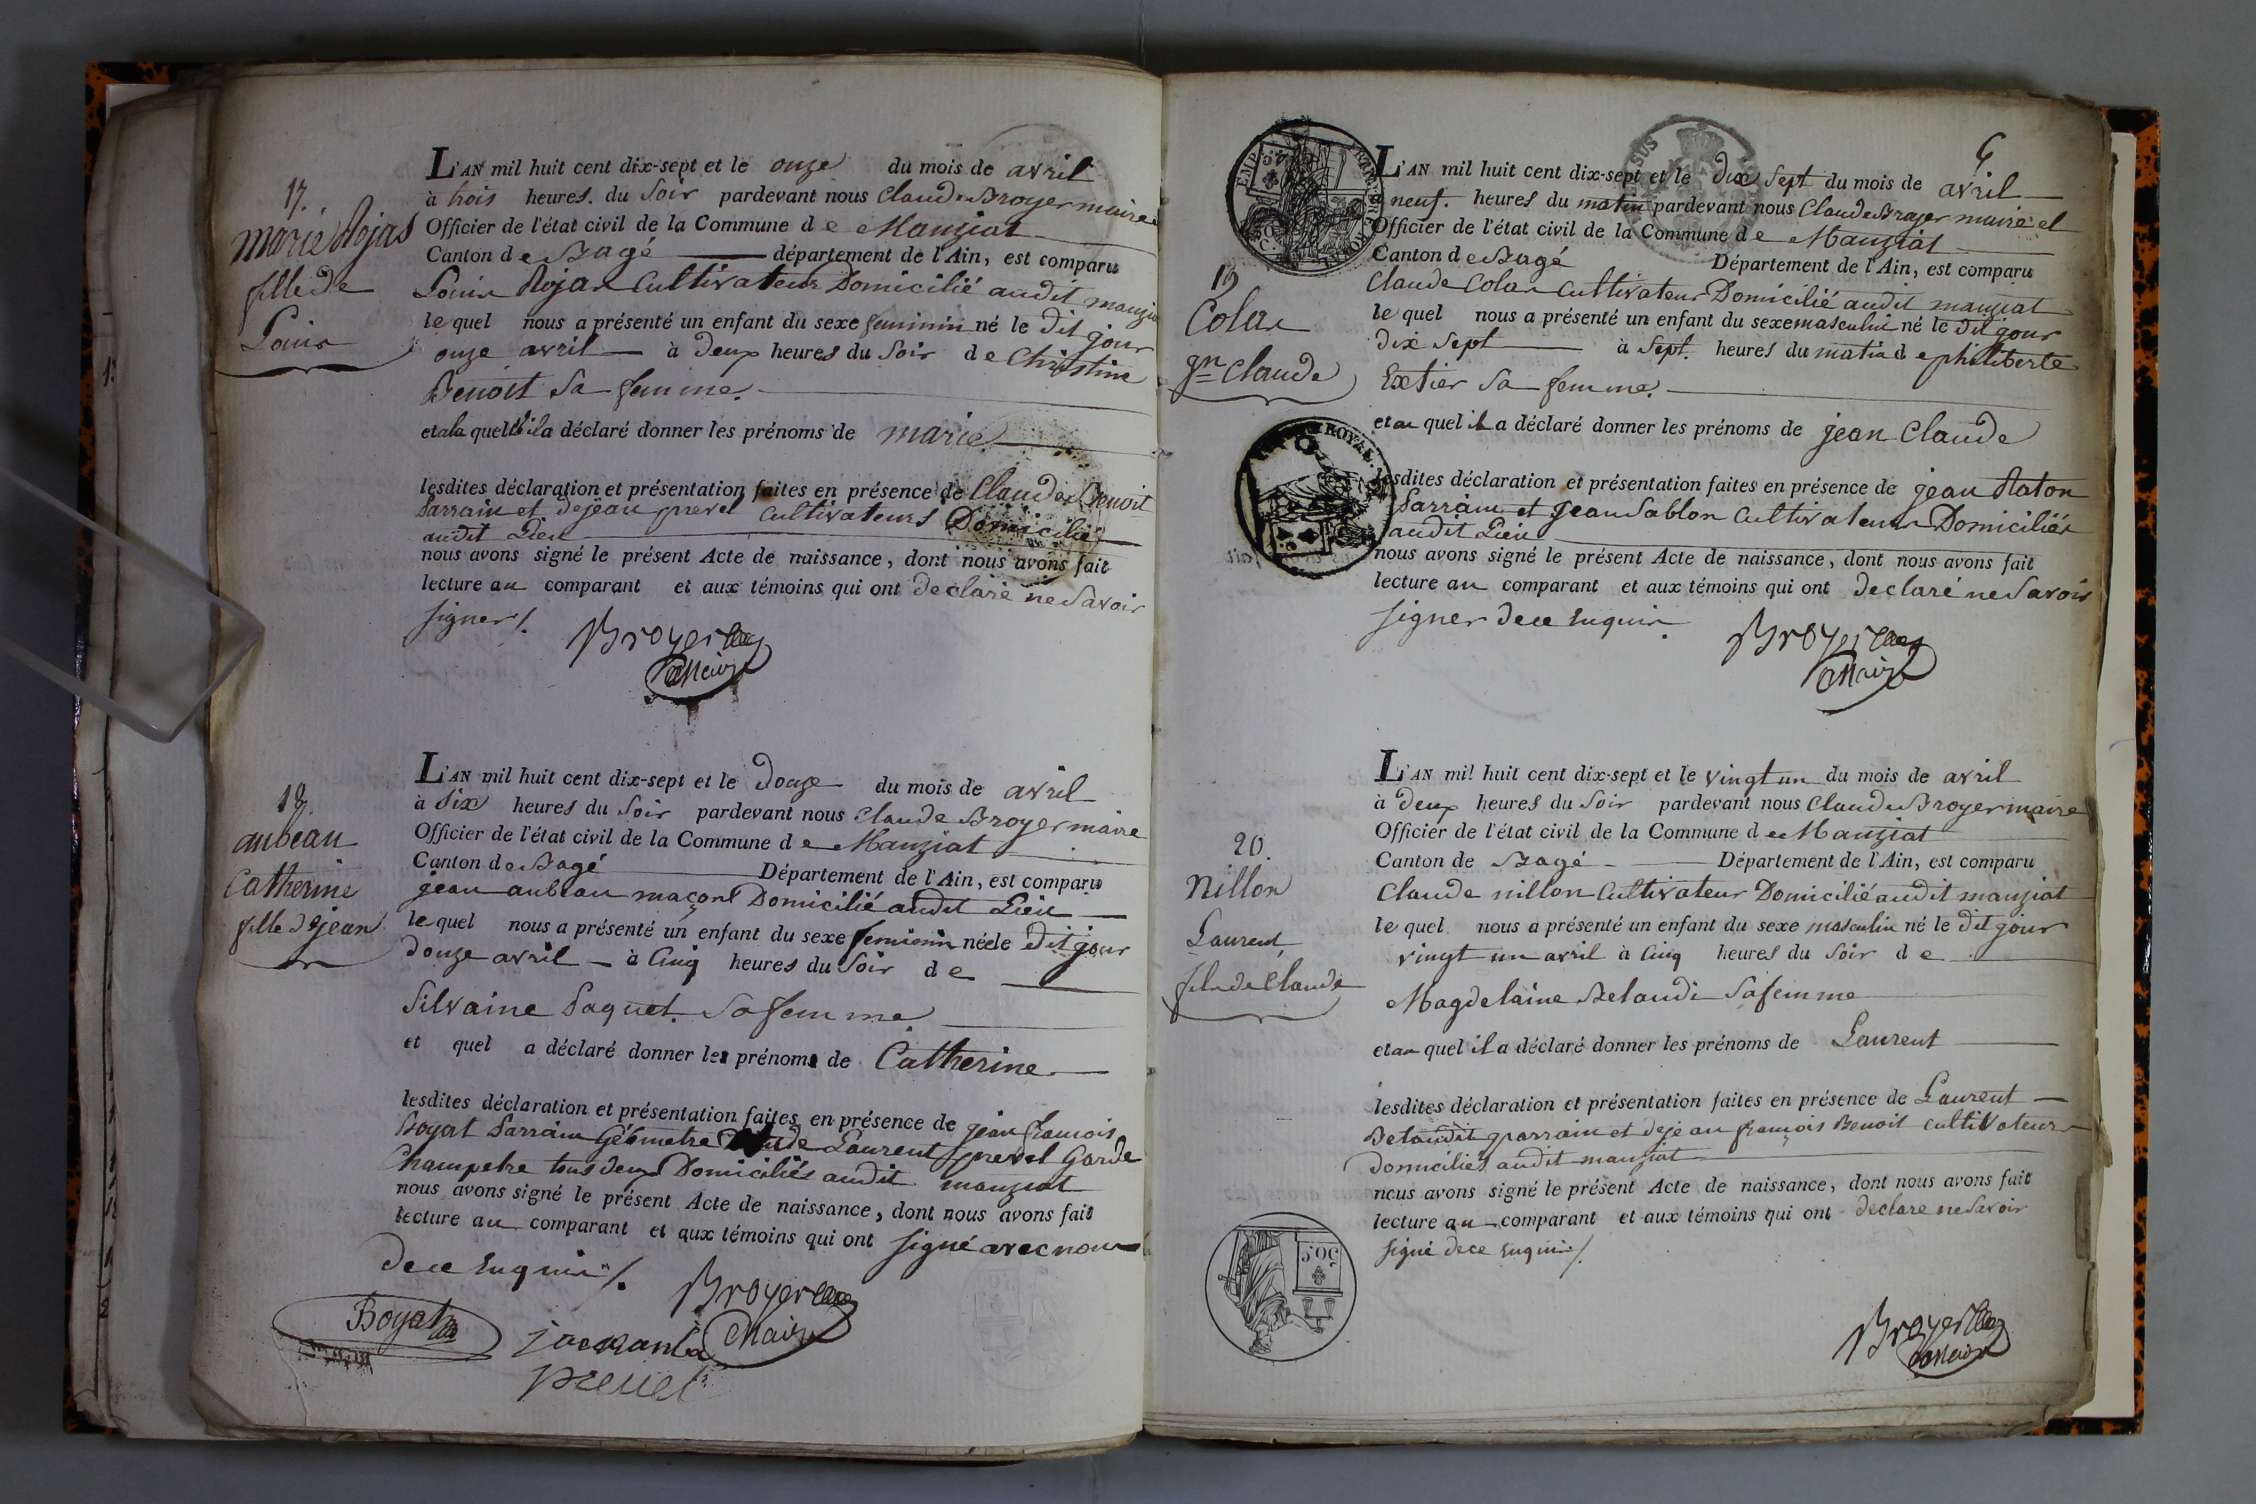 17.
marie Rojas
fille de
Louis
L'AN mil huit cent dix-sept et le onze du mois de avril
à trois heures du Soir pardevant nous Claude Broyer maire
Officier de l'état civil de la Commune de Manziat
Canton de Bagé département de l'Ain, est comparu
Louis Rojas Cultivateur Domicilié audit manziat
le quel nous a présenté un enfant du sexe feminin né le dit jour
onze avril à deux heures du Soir de Christine
Benoit sa femme.
et a la quelle il a déclaré donner les prénoms de marie
lesdites déclaration et présentation faites en présence de Claude Benoit
Parrain et de jean prevel cultivateurs Domiciliés
audit Lieu
nous avons signé le présent Acte de naissance, dont nous avons fait
lecture au comparant et aux témoins qui ont declaré ne Savoir
signer/.
Broyer
Maire
18.
aubeau
Catherine
fille de jean
L'AN mil huit cent dix-sept et le douze du mois de avril
à Six heures du Soir pardevant nous Claude Broyer maire
Officier de l'état civil de la Commune de Manziat
Canton de Bagé Département de l'Ain, est comparu
jean aubeau maçon Domicilié audit Lieu
le quel nous a présenté un enfant du sexe feminin née le dit jour
douze avril à Cinq heures du Soir de
Silvaine Paquet sa femme
et quel a déclaré donner les prénoms de Catherine
lesdites déclaration et présentation faites en présence de jean francois
Boyat Parrain Géometre Laurent prevel Garde
Champetre tous deux Domiciliés audit manziat
nous avons signé le présent Acte de naissance, dont nous avons fait
lecture au comparant et aux témoins qui ont signé avec nous
de ce Enquis/.
Broyer
Maire
Boyat
prevel
G
19
Colas
jn Claude
L'AN mil huit cent dix-sept et le dix Sept du mois de avril
à neuf heures du matin pardevant nous Claude Broyer maire et
Officier de l'état civil de la Commune de Manziat
Canton de Bagé Département de l'Ain, est comparu
Claude Colas Cultivateur Domicilié audit manziat
le quel nous a présenté un enfant du sexe masculin né le dit jour
dix Sept à Sept heures du matin de philiberte
Extier sa femme.
et au quel il a déclaré donner les prénoms de jean Claude
lesdites déclaration et présentation faites en présence de jean Raton
Parrain et Jean Sablon Cultivateurs Domiciliés
audit Lieu
nous avons signé le présent Acte de naissance, dont nous avons fait
lecture au comparant et aux témoins qui ont declaré ne Savoir
signer de ce Enquis.
Broyer
Maire
20.
Nillon
Laurent
fils de Claude
L'AN mil huit cent dix-sept et le vingt un du mois de avril
à deux heures du Soir pardevant nous Claude Broyer maire
Officier de l'état civil de la Commune de Manziat
Canton de Bagé Département de l'Ain, est comparu
Claude nillon Cultivateur Domicilié audit manziat
le quel nous a présenté un enfant du sexe masculin né le dit jour
vingt un avril à Cinq heures du Soir de
Magdelaine Belaudi sa femme
et au quel il a déclaré donner les prénoms de Laurent
lesdites déclaration et présentation faites en présence de Laurent
Belaudit parrain et de jean françois Benoit cultivateurs
domiciliés audit manziat
nous avons signé le présent Acte de naissance, dont nous avons fait
lecture au comparant et aux témoins qui ont declare ne Savoir
signé de ce Enquis/.
50.c
Broyer
Maire